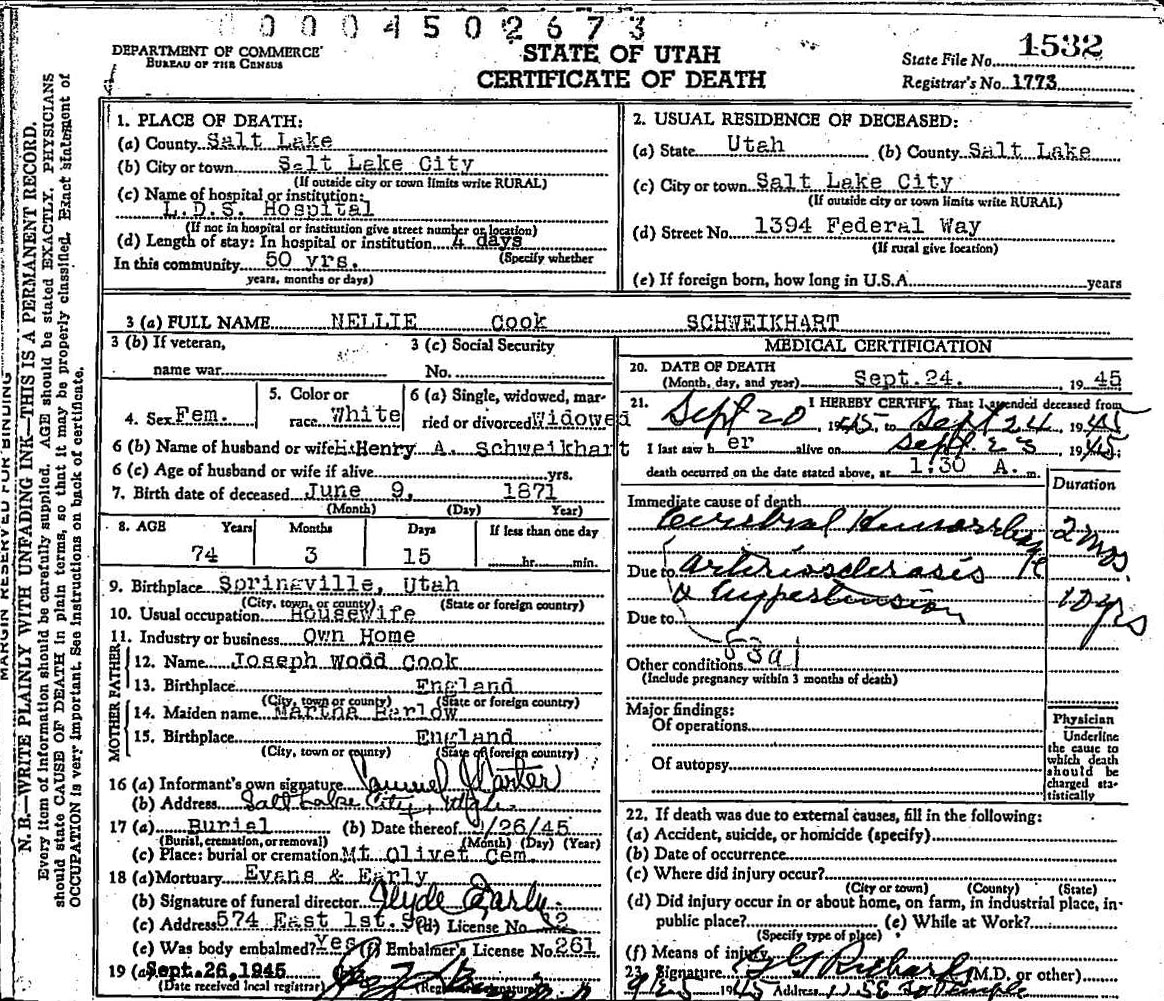 0004502673
DEPARTMENT OF COMMERCE
BUREAU OF THE CENSUS
STATE OF UTAH
CERTIFICATE OF DEATH
State File No. 1532
Registrar's No. 1773
MARGIN RESERVED FOR BINDING
N. B.—WRITE PLAINLY WITH UNFADING INK—THIS IS A PERMANENT RECORD.
Every item of information should be carefully supplied. AGE should be stated EXACTLY. PHYSICIANS
should state CAUSE OF DEATH in plain terms, so that it may be properly classified. Exact statement of
OCCUPATION is very important. See instructions on back of certificate.
1. PLACE OF DEATH:
(a) County Salt Lake
(b) City or town Salt Lake City
(If outside city or town limits write RURAL)
(c) Name of hospital or institution:
L.D.S. Hospital
(If not in hospital or institution give street number or location)
(d) Length of stay: In hospital or institution 4 days
(Specify whether
In this community 50 yrs.
years, months or days)
2. USUAL RESIDENCE OF DECEASED:
(a) State Utah (b) County Salt Lake
(c) City or town Salt Lake City
(If outside city or town limits write RURAL)
(d) Street No. 1394 Federal Way
(If rural give location)
(e) If foreign born, how long in U.S.A. years
3 (a) FULL NAME NELLIE Cook SCHWEIKHART
3 (b) If veteran, 3 (c) Social Security
name war No.
4. Sex Fem. 5. Color or race White 6 (a) Single, widowed, married or divorced Widowed
6 (b) Name of husband or wife Henry A. Schweikhart
6 (c) Age of husband or wife if alive yrs.
7. Birth date of deceased June 9, 1871
(Month) (Day) Year)
8. AGE Years Months Days If less than one day
74 3 15 hr. min.
9. Birthplace Springville, Utah
(City, town, or county) (State or foreign country)
10. Usual occupation Housewife
11. Industry or business Own Home
FATHER
12. Name Joseph Wood Cook
13. Birthplace England
(City, town or county) (State or foreign country)
MOTHER
14. Maiden name Martha Barlow
15. Birthplace England
(City, town or county) (State or foreign country)
16 (a) Informant's own signature
(b) Address Salt Lake City, Utah.
17 (a) Burial (b) Date thereof 9/26/45
(Burial, cremation, or removal) (Month) (Day) (Year)
(c) Place: burial or cremation Mt Olivet Cem.
18 (a) Mortuary Evans & Early
(b) Signature of funeral director Clyde Early
(c) Address 574 East 1st. So. (d) License No.
(e) Was body embalmed? Yes (f) Embalmer's License No. 261
19 (a) Sept. 26, 1945
(Date received local registrar) (Registrar's signature)
MEDICAL CERTIFICATION
20. DATE OF DEATH
(Month, day, and year) Sept. 24. , 19 45
21. I HEREBY CERTIFY, That I attended deceased from
Sept 20 , 1945, to Sept 24 , 1945
I last saw h er alive on Sept. 23 , 1945;
death occurred on the date stated above, at 1:30 A. m.
Duration
Immediate cause of death
Cerebral Hemorrhage 2 mos.
Due to Arthriosclerosis
& hypertension 10 yrs
Due to
83a1
Other conditions
(Include pregnancy within 3 months of death)
Major findings:
Of operations
Of autopsy
Physician
Underline
the cause to
which death
should be
charged sta-
tistically
22. If death was due to external causes, fill in the following:
(a) Accident, suicide, or homicide (specify)
(b) Date of occurrence
(c) Where did injury occur?
(City or town) (County) (State)
(d) Did injury occur in or about home, on farm, in industrial place, in
public place? (e) While at Work?
(Specify type of place)
(f) Means of injury
23. Signature G G Richards (M.D. or other)
9/25 1945 Address 1155 E So Temple